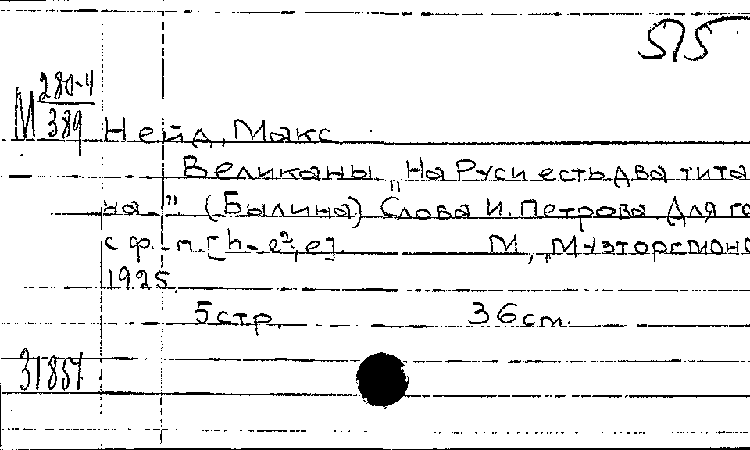 515
М 280-4
389
Нейд, Макс
Великаны „На Руси есть два тита
на" (Былина) Слова И. Петрова. Для го
с ф.-п. [h-e², e]. М., „Музторгмоно
1925.
5 стр. 36 cm.
31854